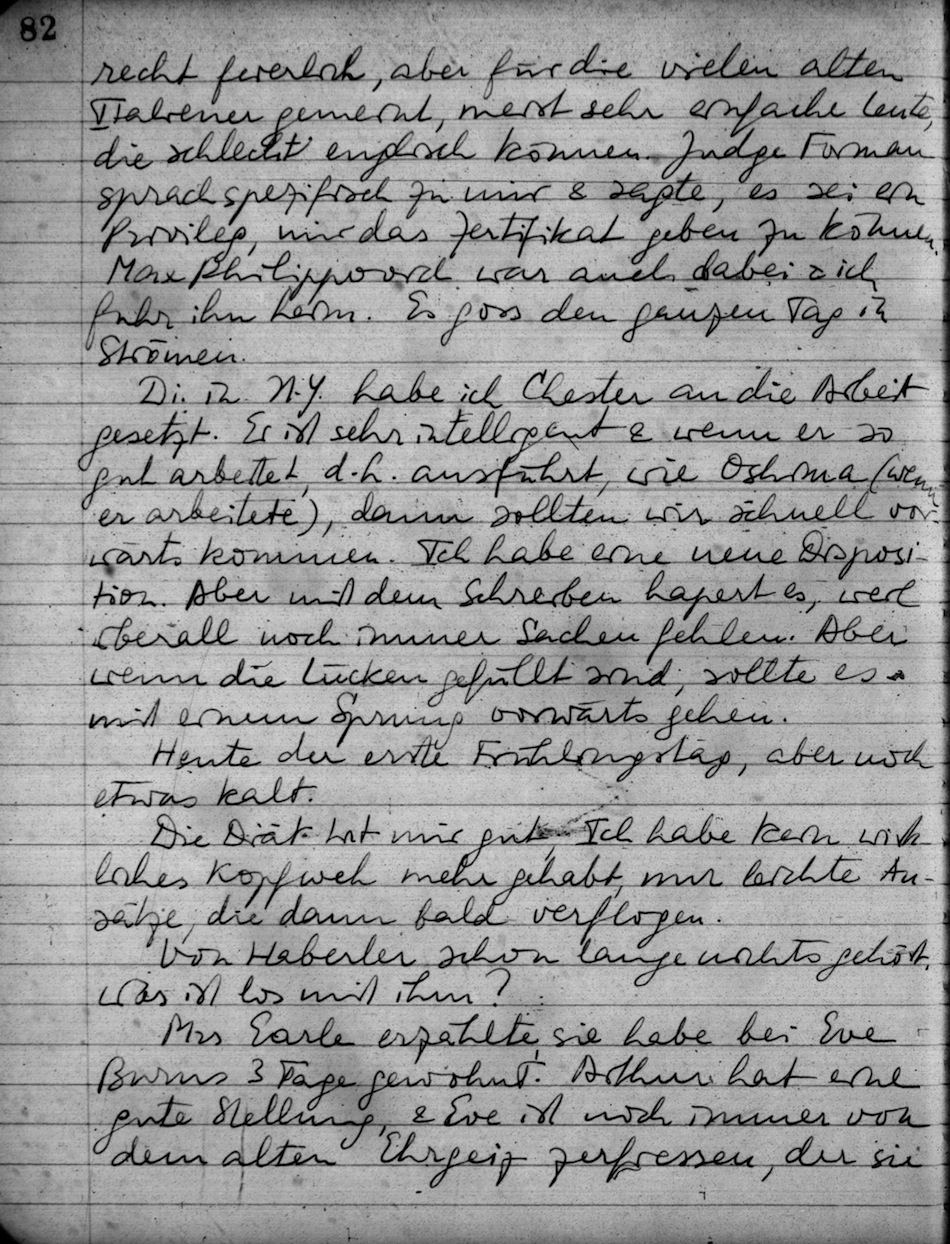 82
recht feierlich, aber für die vielen alten
Italiener gemeint, meist sehr einfache Leute,
die schlecht englisch können. Judge Forman
sprach spezifisch zu mir & sagte, es sei ein
Privileg, mir das Zertifikat geben zu können.
Max Philippovich war auch dabei & ich
fuhr ihn heim. Es goss den ganzen Tag in
Strömen.
Di. in N.Y. habe ich Chester an die Arbeit
gesetzt. Er ist sehr intelligent & wenn er so
gut arbeitet, d.h. ausführt, wie Oshima (wenn
er arbeitete), dann sollten wir schnell vor-
wärts kommen. Ich habe eine neue Disposi-
tion. Aber mit dem Schreiben hapert es, weil
überall noch immer Sachen fehlen. Aber
wenn die Lücken gefüllt sind, sollte es
mit einem Sprung vorwärts gehen.
Heute der erste Frühlingstag, aber noch
etwas kalt.
Die Diät tut mir gut, Ich habe kein wirk-
liches Kopfweh mehr gehabt, nur leichte An-
sätze, die dann bald verflogen.
Von Haberler schon lange nichts gehört,
was ist los mit ihm?
Mrs Earle erzählte, sie habe bei Eve
Burns 3 Tage gewohnt. Arthur hat eine
gute Stellung, & Eve ist noch immer von
dem alten Ehrgeiz zerfressen, der sie